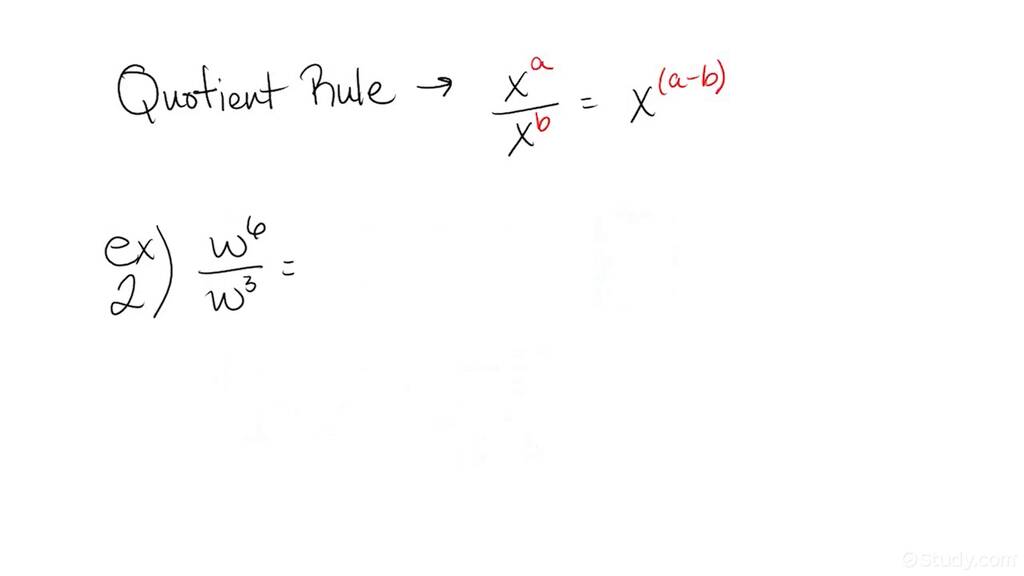 Quotient Rule → x^a / x^b = x^(a-b)
ex 2) w^6 / w^3 =
Study.com